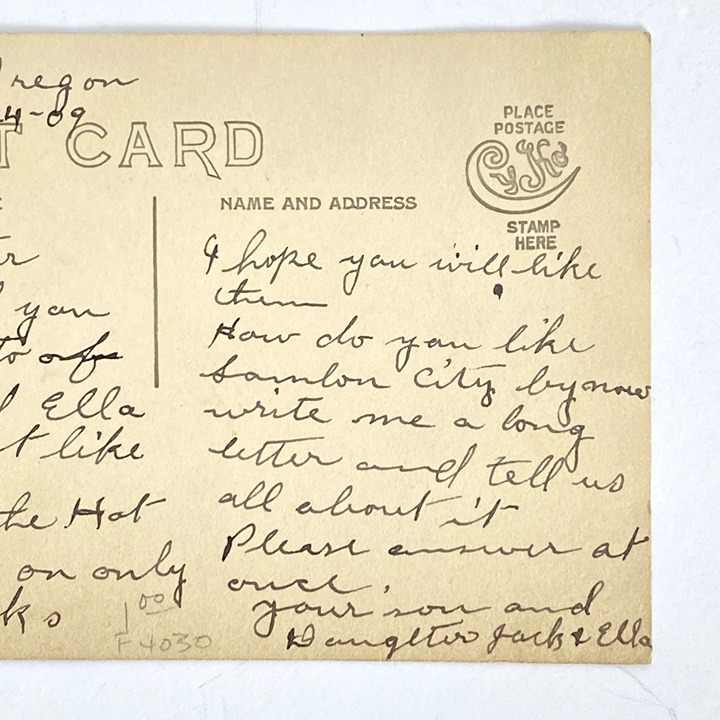 regon
4-09
T CARD
PLACE
POSTAGE
Cyko
STAMP
HERE
NAME AND ADDRESS
you
to
Ella
t like
the Hot
on only
ks
1 00
F4030
I hope you will like
them
How do you like
City by now
write me a long
letter and tell us
all about it
Please answer at
once.
your son and
Daughter Jack & Ella